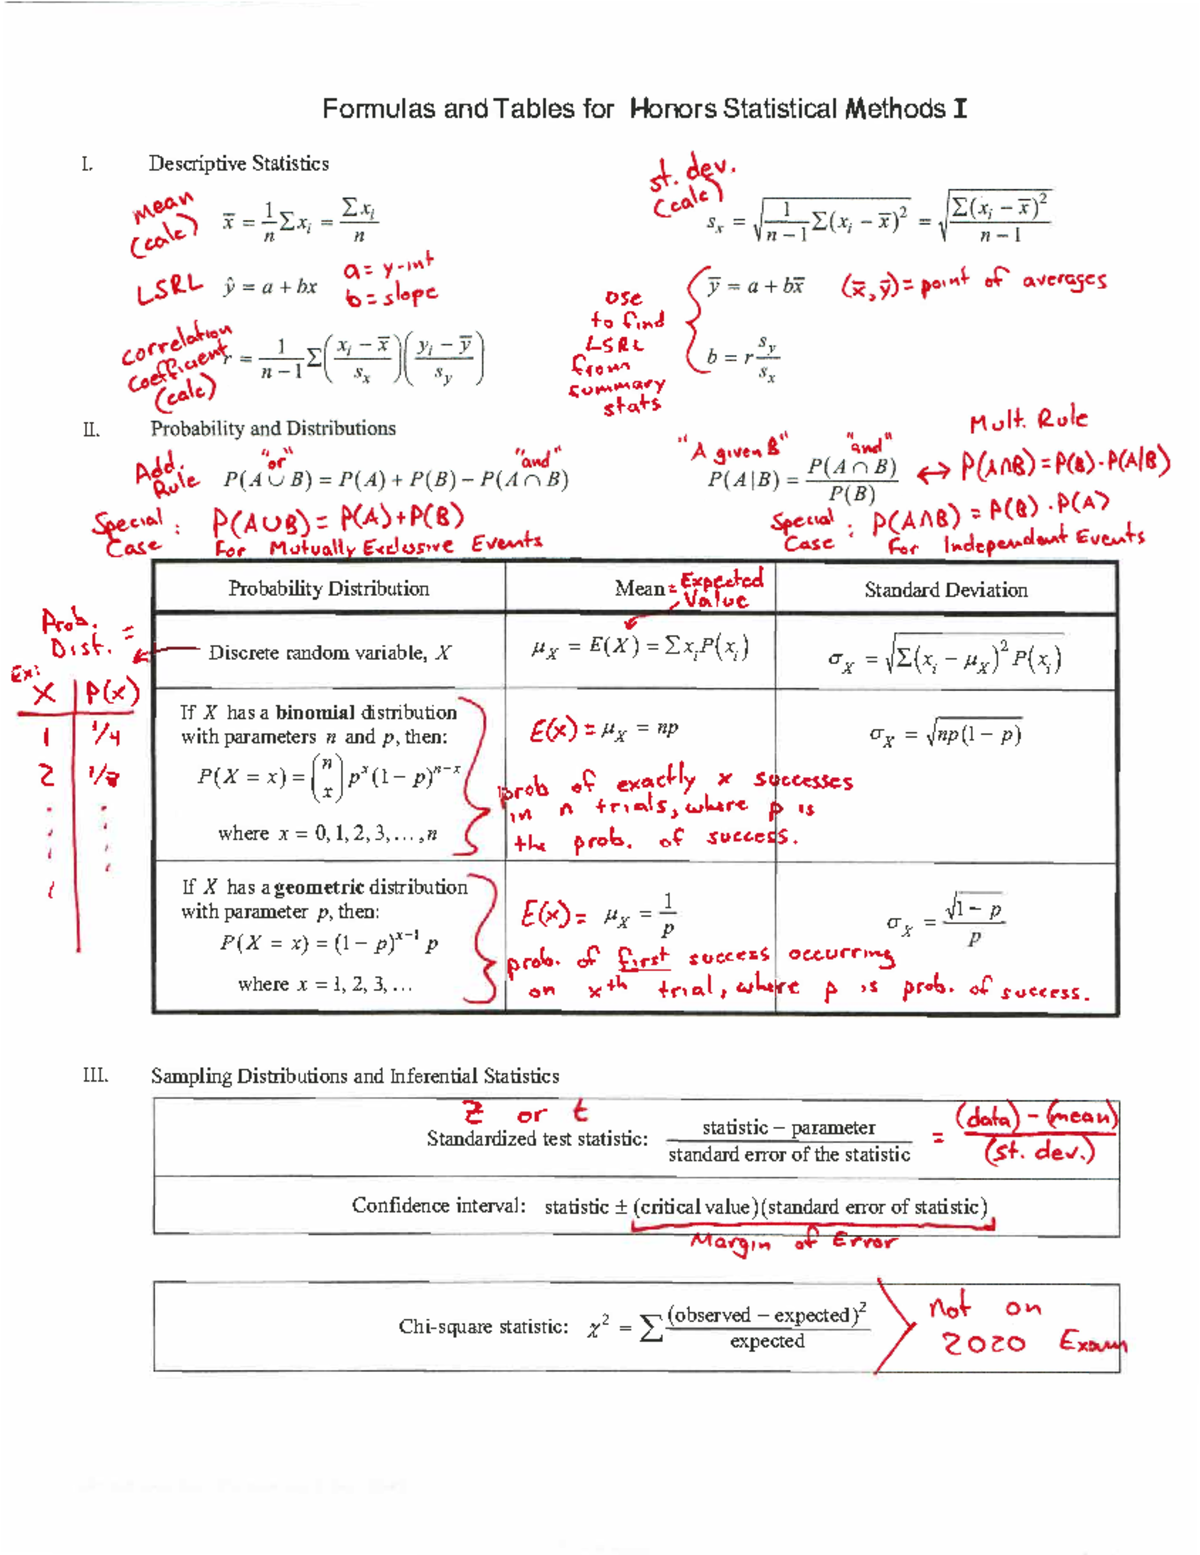 Formulas and Tables for Honors Statistical Methods I
I. Descriptive Statistics
mean (calc) x̄ = 1/n Σxᵢ = Σxᵢ/n
st. dev. (calc) sₓ = √(1/(n − 1) Σ(xᵢ − x̄)²) = √(Σ(xᵢ − x̄)²/(n − 1))
LSRL ŷ = a + bx a = y-int b = slope
Use to find LSRL from summary stats
ȳ = a + bx̄ (x̄, ȳ) = point of averages
correlation coefficient (calc) r = 1/(n − 1) Σ((xᵢ − x̄)/sₓ)((yᵢ − ȳ)/s_y)
b = r s_y/sₓ
II. Probability and Distributions
Mult. Rule
Add. Rule "or" "and"
P(A ∪ B) = P(A) + P(B) − P(A ∩ B)
"A given B" "and"
P(A|B) = P(A ∩ B)/P(B) ↔ P(A∩B) = P(B)·P(A|B)
Special Case: P(A∪B) = P(A)+P(B)
For Mutually Exclusive Events
Special Case: P(A∩B) = P(B)·P(A)
For Independent Events
Probability Distribution
Mean = Expected Value
Standard Deviation
Prob. Dist. =
Ex:
X P(x)
1 1/4
2 1/8
Discrete random variable, X
μ_X = E(X) = ΣxᵢP(xᵢ)
σ_X = √(Σ(xᵢ − μ_X)² P(xᵢ))
If X has a binomial distribution
with parameters n and p, then:
P(X = x) = (n x) pˣ(1 − p)ⁿ⁻ˣ
where x = 0, 1, 2, 3, …, n
E(x) = μ_X = np
σ_X = √(np(1 − p))
prob of exactly x successes
in n trials, where p is
the prob. of success.
If X has a geometric distribution
with parameter p, then:
P(X = x) = (1 − p)ˣ⁻¹ p
where x = 1, 2, 3, …
E(x) = μ_X = 1/p
σ_X = √(1 − p)/p
prob. of first success occurring
on xᵗʰ trial, where p is prob. of success.
III. Sampling Distributions and Inferential Statistics
z or t
Standardized test statistic: statistic − parameter / standard error of the statistic = (data) − (mean) / (st. dev.)
Confidence interval: statistic ± (critical value)(standard error of statistic)
Margin of Error
Chi-square statistic: χ² = Σ (observed − expected)²/expected
Not on
2020 Exam